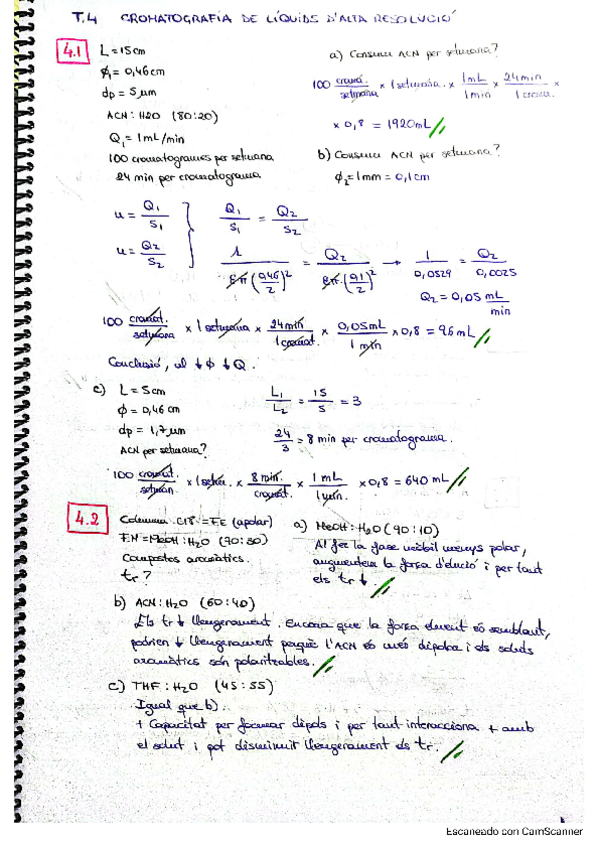 T.4 CROMATOGRAFIA DE LÍQUIDS D'ALTA RESOLUCIÓ
4.1
L = 15 cm
ϕ₁ = 0,46 cm
dp = 5 µm
ACN : H2O (80:20)
Q₁ = 1 mL/min
100 cromatogrames per setmana
24 min per cromatograma
a) Consum ACN per setmana?
100 cromat./setmana × 1 setmana × 1 mL/1 min × 24 min/1 cromat. ×
× 0,8 = 1920 mL //
b) Consum ACN per setmana?
ϕ₂ = 1 mm = 0,1 cm
u = Q₁/S₁
u = Q2/S2
Q₁/S₁ = Q2/S2
1/(π·(0,46/2)²) = Q2/(π·(0,1/2)²) → 1/0,0529 = Q2/0,0025
Q2 = 0,05 mL/min
100 cromat./setmana × 1 setmana × 24 min/1 cromat. × 0,05 mL/1 min × 0,8 = 96 mL //
Conclusió, ↓ ϕ ↓ Q.
c) L = 5 cm
ϕ = 0,46 cm
dp = 1,7 µm
ACN per setmana?
L₁/L2 = 15/5 = 3
24/3 = 8 min per cromatograma.
100 cromat./setman × 1 setm. × 8 min./cromat. × 1 mL/1 min. × 0,8 = 640 mL //
4.2
Columna C18 = FE (apolar)
F.M = MeOH : H2O
Compostos aromàtics.
tr ?
a) MeOH : H2O (90:10)
Al fer la fase mòbil menys polar,
augmentem la força d'elució i per tant
els tr ↓ //
b) ACN : H2O (60:40)
Els tr ↓ lleugerament. Encara que la força eluent és semblant,
podrien ↓ lleugerament perquè l'ACN és més dipolar i els soluts
aromàtics són polaritzables. //
c) THF : H2O (45:55)
Igual que b).
+ Capacitat per formar dipols i per tant interacciona + amb
el solut i pot disminuir lleugerament els tr. //
Escaneado con CamScanner